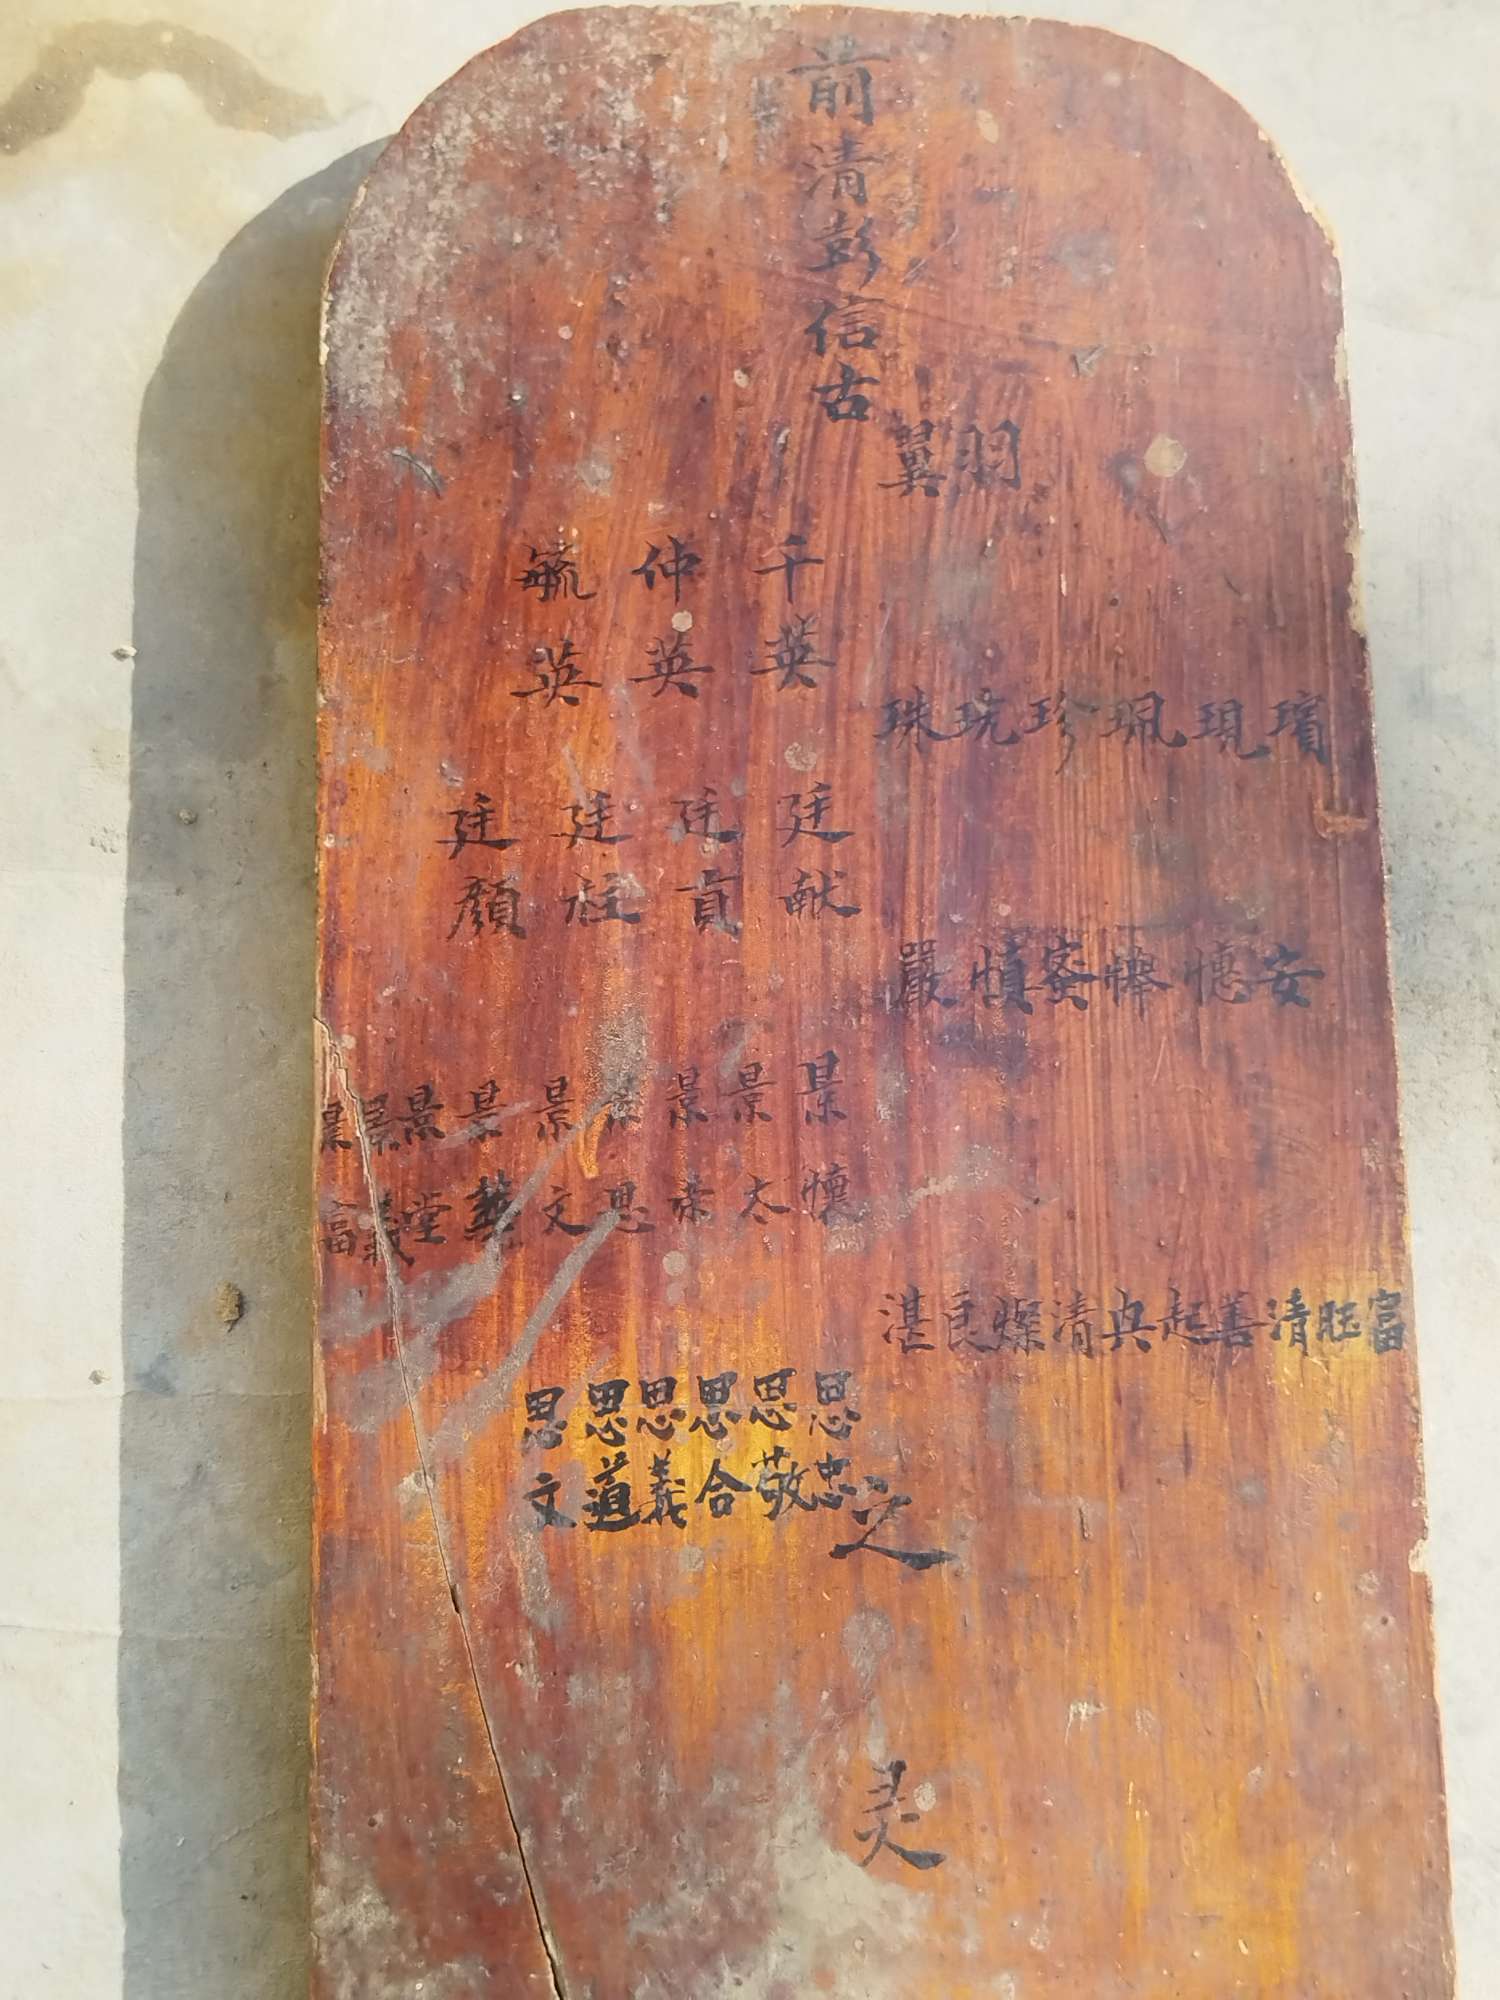 前清彭信古
翼 羽
毓英 仲英 千英
珠 珖 珍 珮 現 璸
廷顏 廷柱 廷貢 廷献
嚴 慎 憲 安
景富 景義 景堂 景藝 景文 景思 景榮 景太 景懷
湛 良 燦 清 典 起 善 清 旺 富
思文 思道 思義 思合 思敬 思忠
之
灵